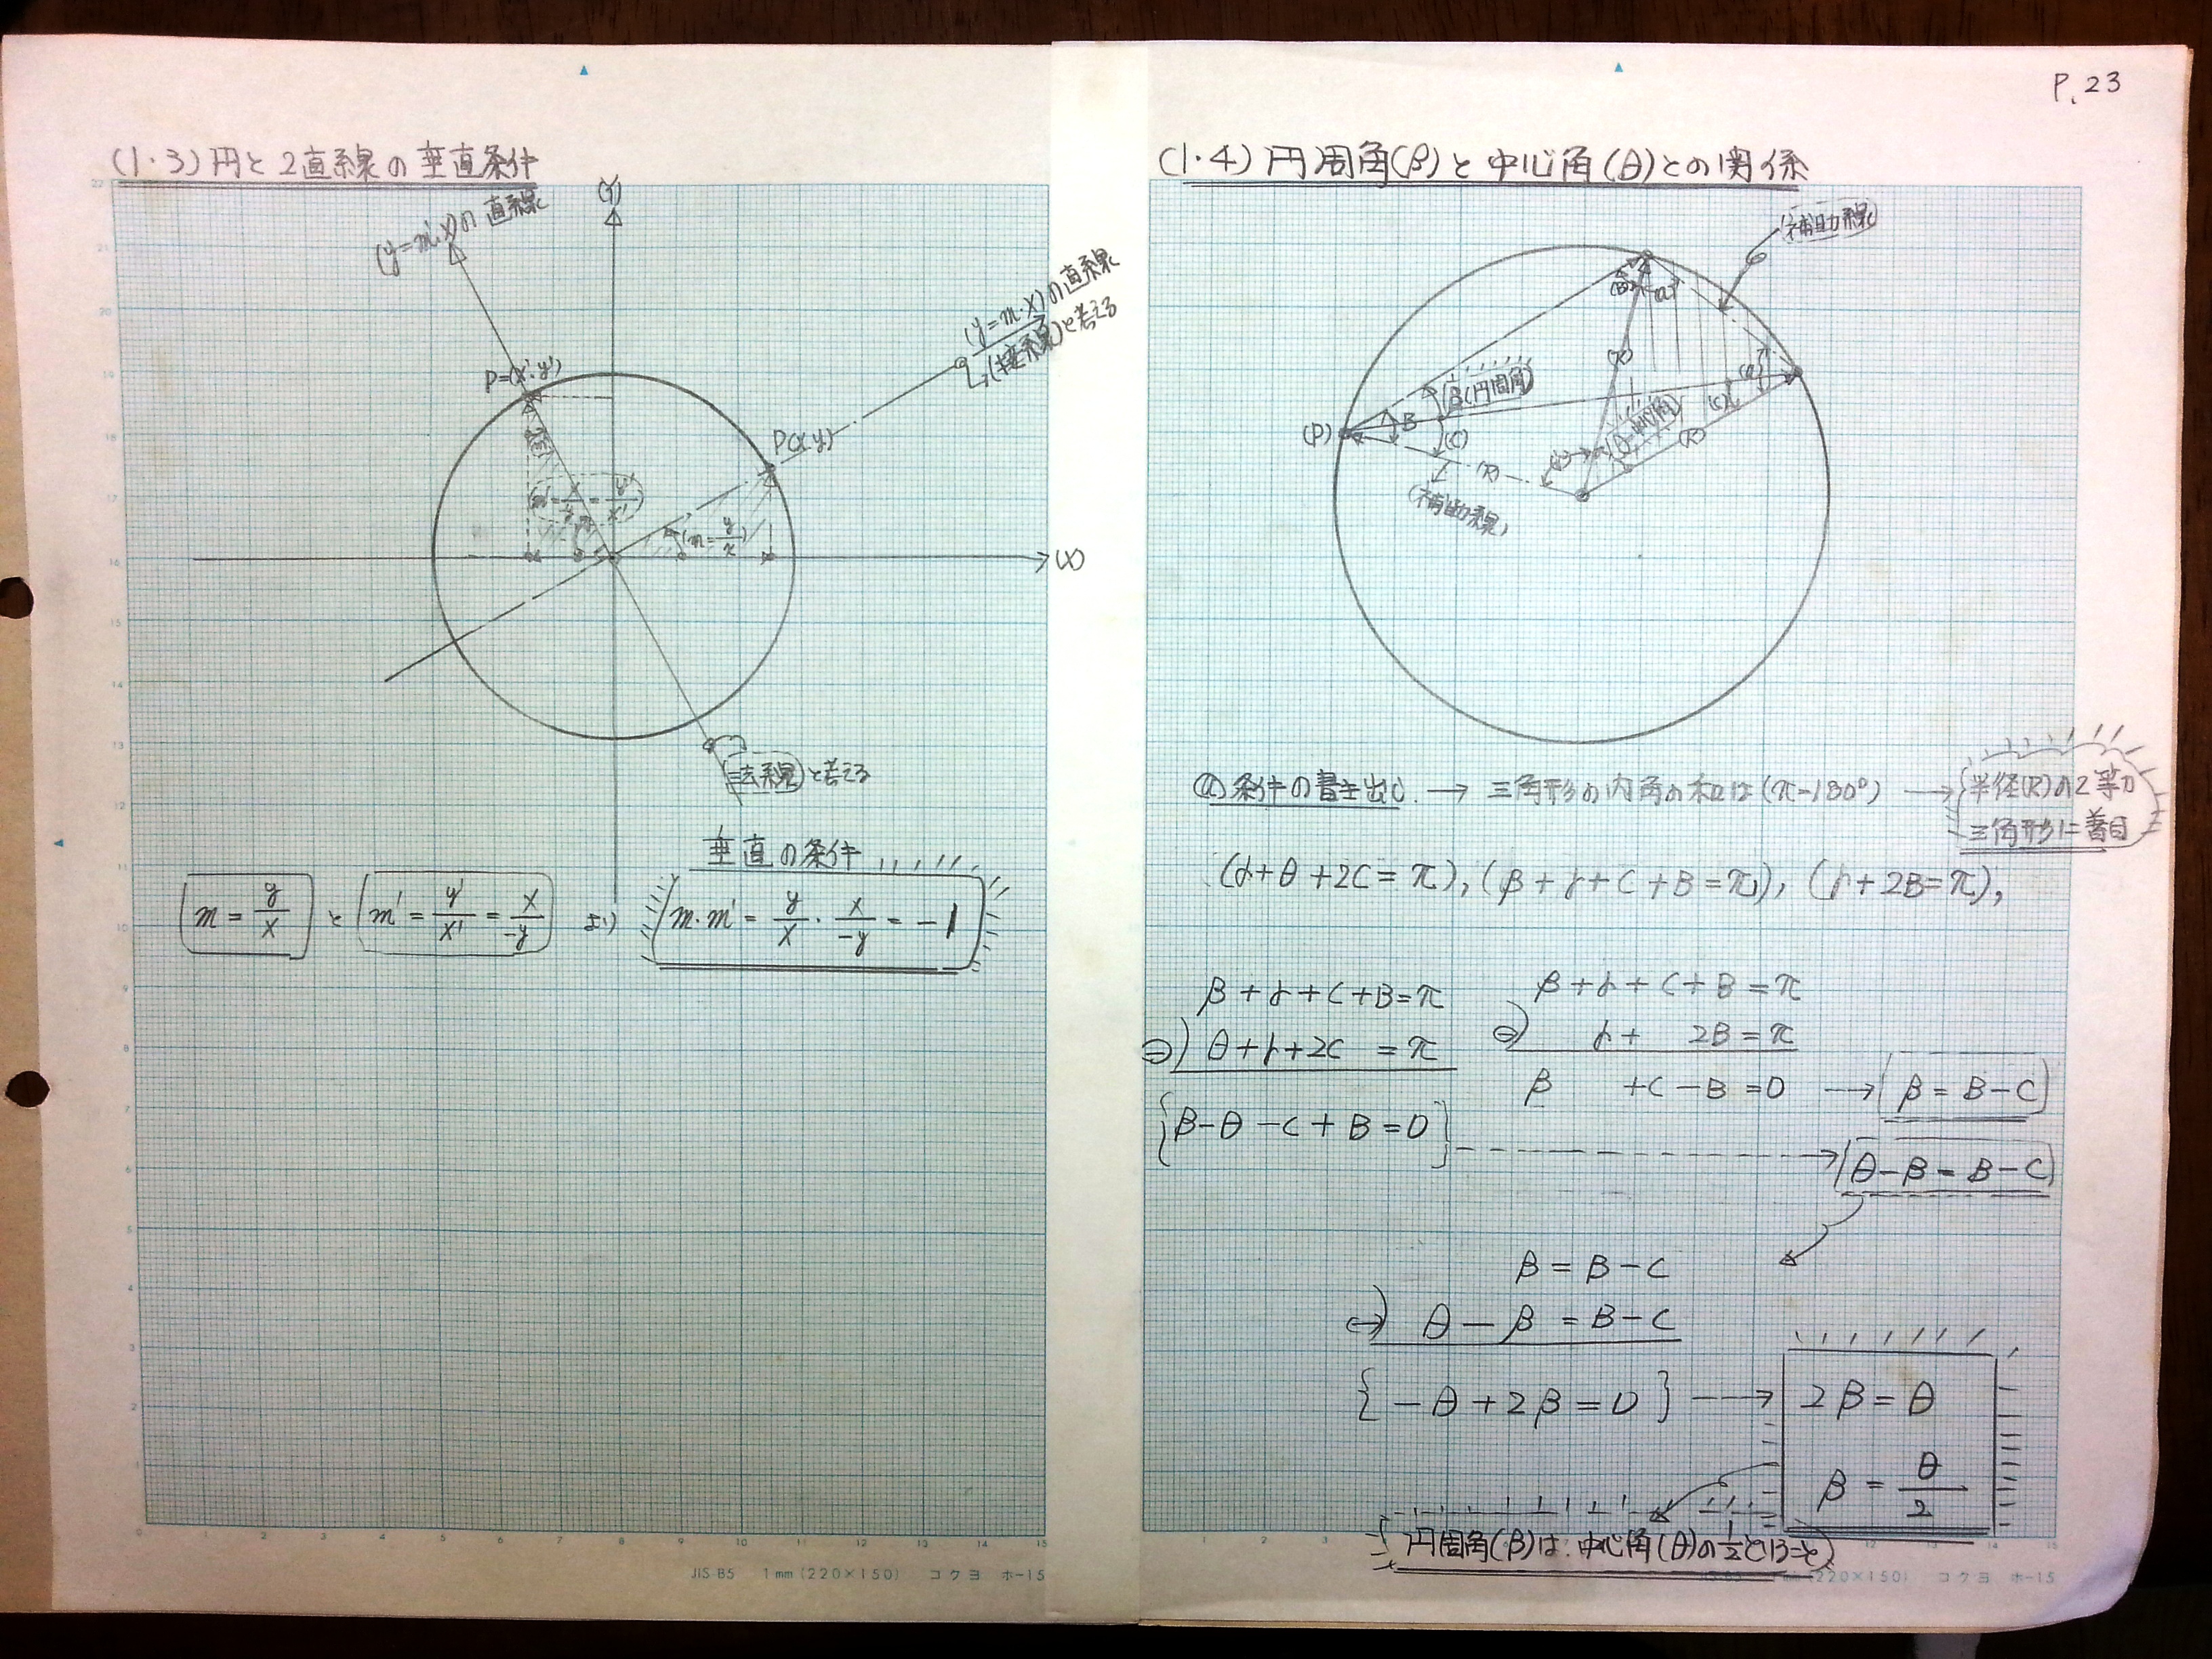 P.23
(1・3) 円と2直線の垂直条件
(y=m'・x)の直線
(Y)
(y=m・x)の直線
(接線)と考える
P=(x'・y')
P(x・y)
(m=y/x)
(X)
(法線)と考える
垂直の条件
m = y/x と m' = y'/x' = x/-y より m・m' = y/x・x/-y = -1
JIS B5 1mm (220×150) コクヨ ホ-15
(1・4) 円周角(β)と中心角(θ)との関係
(補助線)
β(円周角)
(θ=中心角)
(P)
B
(C)
(R)
(R)
(C)
(補助線)
条件の書き出し → 三角形の内角の和は(π-180°) → 半径(R)の2等辺
三角形に着目
(γ+θ+2C=π), (β+γ+C+B=π), (γ+2B=π),
β+γ+C+B=π
⊖) θ+γ+2C =π
{β-θ-C+B=0}
β+γ+C+B=π
⊖) γ+ 2B=π
β +C-B=0 → β=B-C
θ-β=B-C
β=B-C
⊖) θ-β=B-C
{-θ+2β=0} → 2β=θ
β = θ/2
円周角(β)は、中心角(θ)の1/2と
(220×150) コクヨ ホ-15